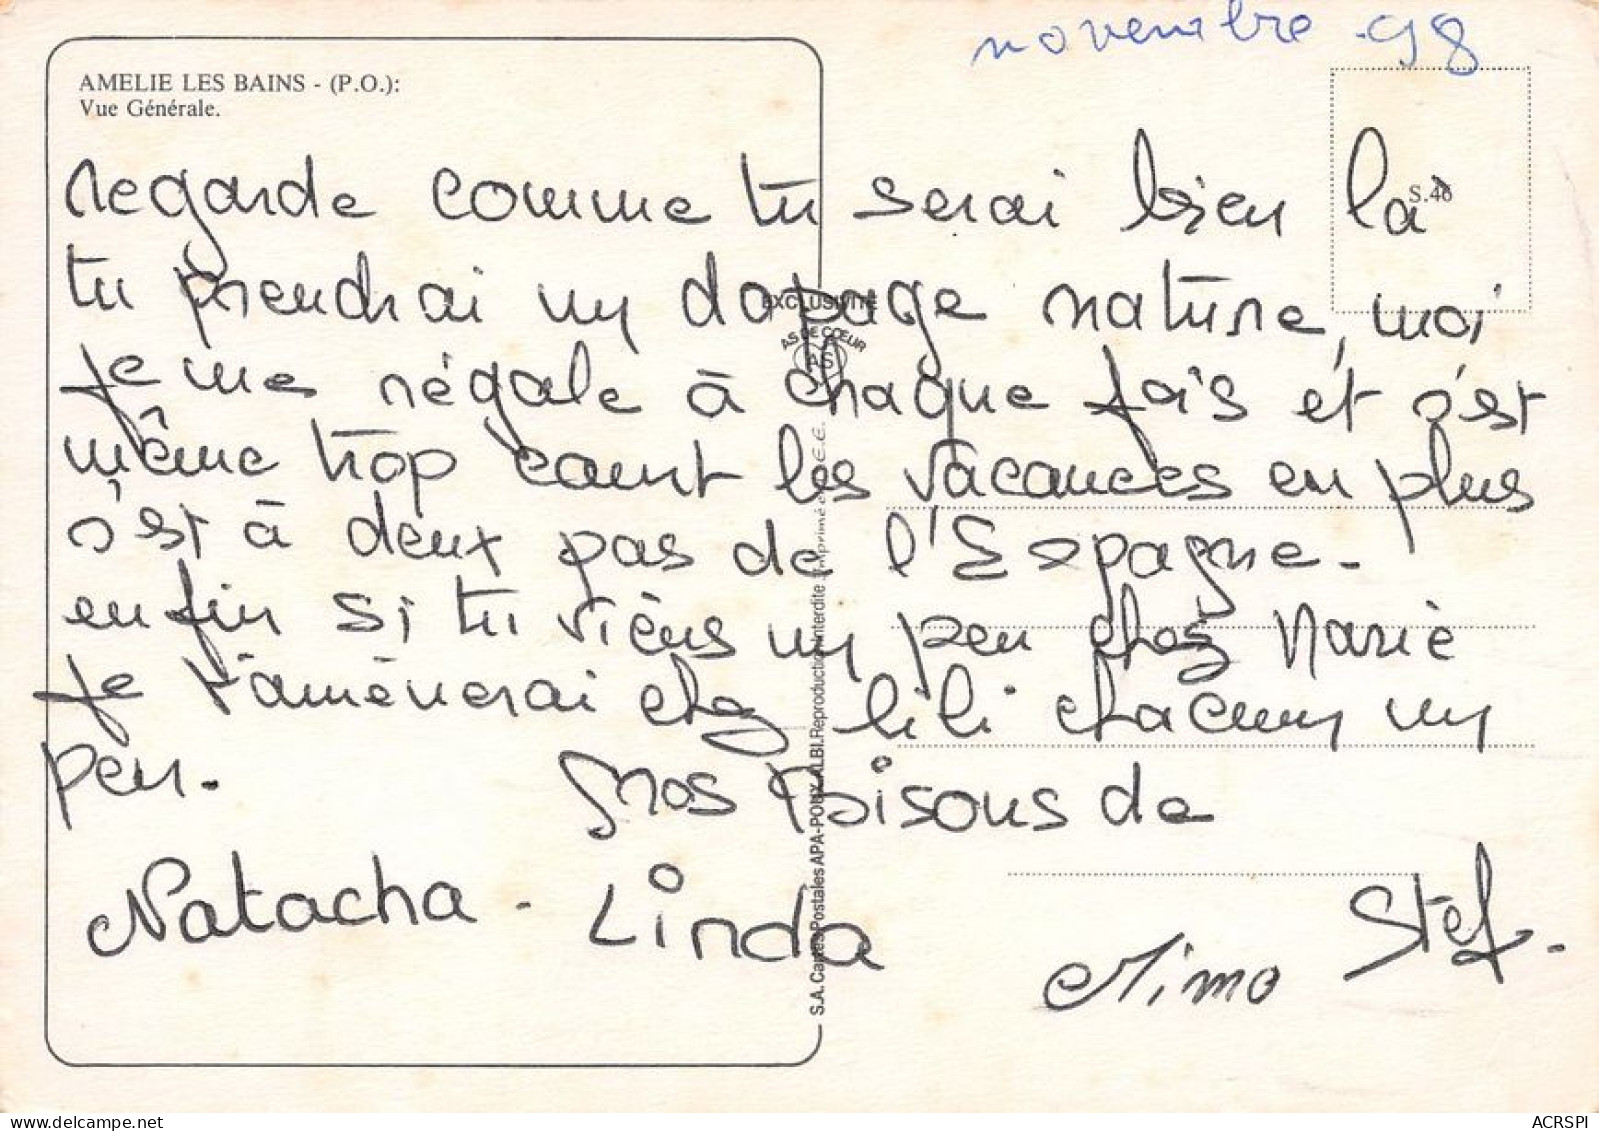 novembre 98
AMELIE LES BAINS - (P.O.):
Vue Générale.
S.46
regarde comme tu serai bien la
tu prendrai un dopage nature, moi
je me régale à chaque fois et c'est
même trop court les vacances en plus
c'est à deux pas de l'Espagne.
enfin si tu viens un peu chez Marie
je t'amènerai chez lili chacun un
peu. Gros bisous de
Natacha - Linda
Mimo Stef.
EXCLUSIVITÉ
AS DE CŒUR
AS
S.A. Cartes Postales APA-POUX ALBI. Reproduction Interdite Imprimé en C.E.E.
ACRSPI